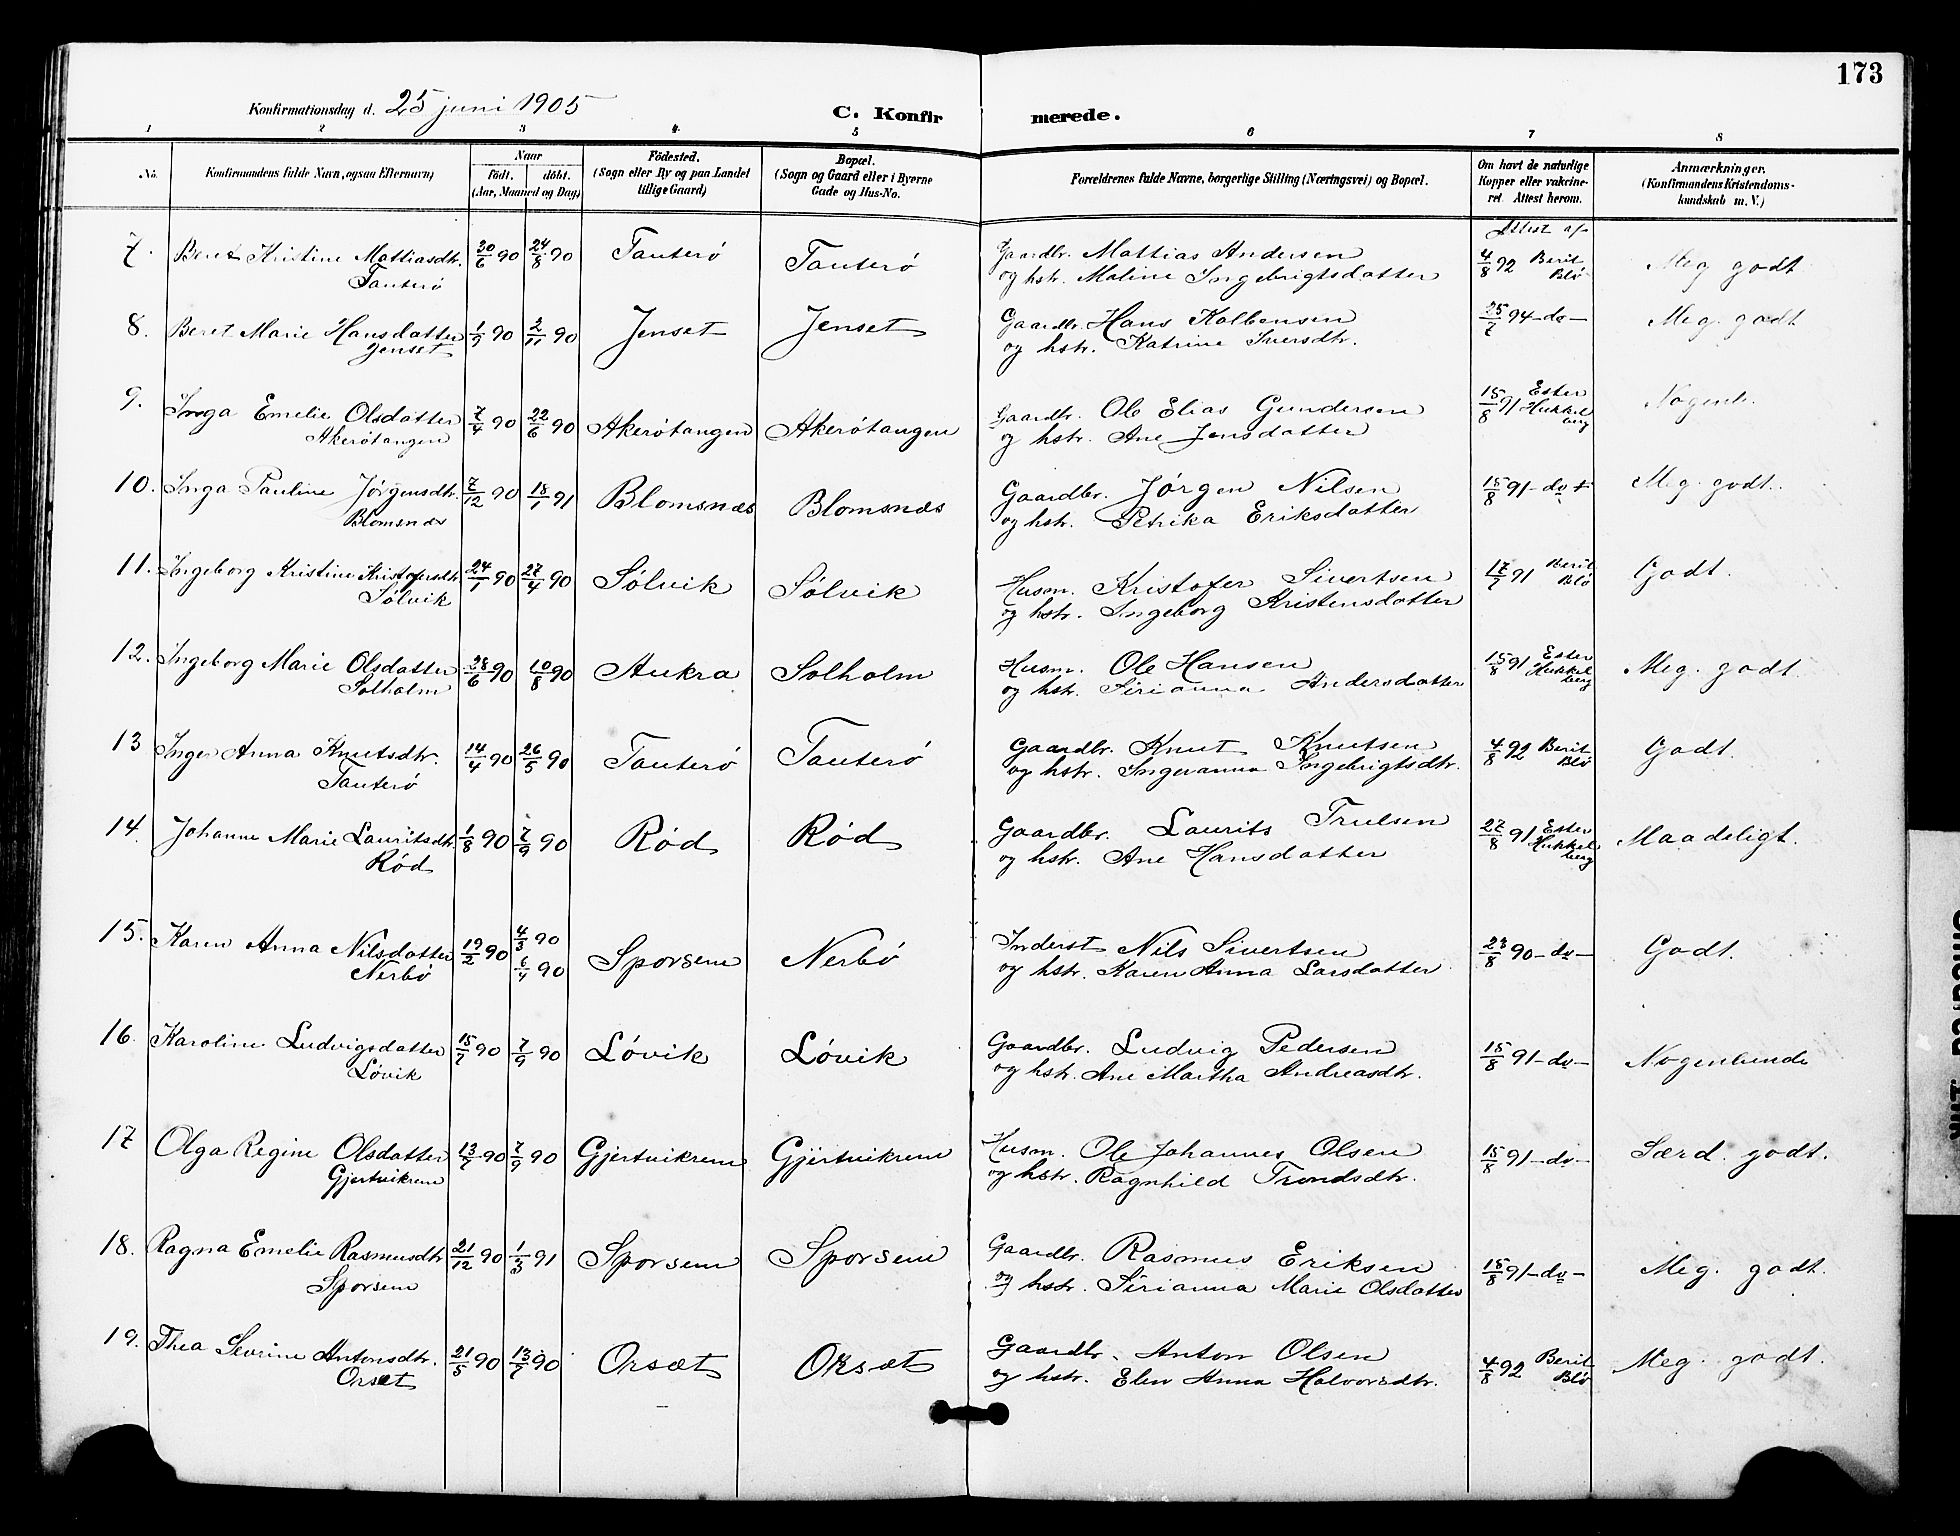 173
Konfirmationsdag d. 25 juni 1905
C. Konfirmerede.
1 2 3 4 5 6 7 8
No. Konfirmandens fulde Navn, ogsaa Efternavn) Naar født. døbt. (Aar, Maaned og Dag) Fødested. (Sogn eller By og paa Landet tillige Gaard) Bopæl. (Sogn og Gaard eller i Byerne Gade og Hus-No. Forældrenes fulde Navne, borgerlige Stilling (Næringsvei) og Bopæl. Om havt de naturlige Kopper eller vakcineret. Attest herom. Anmærkninger. (Konfirmandens Kristendomskundskab m. V.)
Attest af
7. Beret Kristine Mattiasdtr. 30/6 90 24/8 90 Tauterø Tauterø Gaardbr. Mattias Andersen 4/8 92 Berit Blø Meg. godt
Tauterø og hstr. Maline Ingebrigtsdatter
8. Beret Marie Hansdatter 1/9 90 2/11 90 Jenset Jenset Gaardbr. Hans Kolbensen 25/7 94 -do- Meg. godt
Jenset og hstr. Katrine Iversdtr.
9. Inga Emelie Olsdatter 7/4 90 22/6 90 Akerøtangen Akerøtangen Gaardbr. Ole Elias Gundersen 15/8 91 Ester Hukkelberg Nogenl.
Akerøtangen og hstr. Ane Jensdatter
10. Inga Pauline Jørgensdtr. 7/12 90 18/1 91 Blomsnæs Blomsnæs Gaardbr. Jørgen Nilsen 15/8 91 -do- Meg. godt.
Blomsnæs og hstr. Petrika Eriksdatter
11. Ingeborg Kristine Kristofersdtr. 24/1 90 27/4 90 Sølvik Sølvik Husm. Kristofer Sivertsen 17/7 91 Berit Blø Godt.
Sølvik og hstr. Ingeborg Kristensdatter
12. Ingeborg Marie Olsdatter 28/6 90 10/8 90 Aukra Solholm Husm. Ole Hansen 15/8 91 Ester Hukkelberg Meg. godt.
Solholm og hstr. Sirianna Andersdatter
13 Inger Anna Knutsdtr. 14/4 90 26/5 90 Tauterø Tauterø Gaardbr. Knut Knutsen 4/8 92 Berit Blø Godt.
Tauterø og hstr. Ingeranna Ingebrigtsdtr.
14. Johanne Marie Lauritsdtr. 1/8 90 7/9 90 Rød Rød Gaardbr. Laurits Trulsen 27/8 91 Ester Hukkelberg Maadeligt.
Rød og hstr. Ane Hansdatter
15. Karen Anna Nilsdatter 19/2 90 4/3 90 6/4 90 Sporsem Nerbø Inderst Nils Sivertsen 23/8 90 -do- Godt.
Nerbø og hstr. Karen Anna Larsdatter
16. Karoline Ludvigsdatter 15/7 90 7/9 90 Løvik Løvik Gaardbr. Ludvig Pedersen 15/8 91 -do- Nogenlunde
Løvik og hstr. Ane Martha Andreasdtr.
17 Olga Regine Olsdatter 13/7 90 7/9 90 Gjertvikrem Gjertvikrem Husm. Ole Johannes Olsen 15/8 91 -do- Særd. godt.
Gjertvikrem og hstr. Ragnhild Trondsdtr.
18. Ragna Emelie Rasmusdtr 21/12 90 1/3 91 Sporsem Sporsem Gaardbr. Rasmus Eriksen 15/8 91 -do- Meg. godt.
Sporsem og hstr. Sirianna Marie Olsdatter
19. Thea Severine Antonsdtr. 21/5 90 13/7 90 Orsæt Orsæt Gaardbr. Anton Olsen 4/8 92 Berit Blø Meg. godt.
Orsæt og hstr. Elen Anna Halvorsdtr.